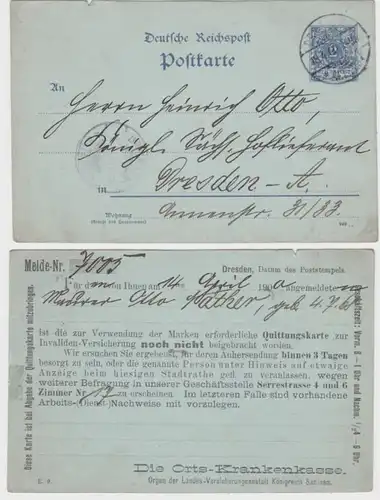 Deutsche Reichspost
Postkarte
An
Herrn Heinrich Otto,
Königl. Sächs. Hoflieferant
in Dresden-A.
Wohnung
31/33.
Melde-Nr. 7005
Dresden, Datum des Poststempels.
für den von Ihnen am 14 April 190 angemeldeten
Maurer Otto geb. 4.7.
ist die zur Verwendung der Marken erforderliche Quittungskarte zur
Invaliden-Versicherung noch nicht beigebracht worden.
Wir ersuchen Sie ergebenst, für deren Anhersendung binnen 3 Tagen
besorgt zu sein, oder die genannte Person unter Hinweis auf etwaige
Anzeige beim hiesigen Stadtrathe gefl. zu veranlassen, wegen
weiterer Befragung in unserer Geschäftsstelle Serrestrasse 4 und 6
Zimmer Nr. 17 zu erscheinen. Im letzteren Falle sind vorhandene
Arbeits-(Dienst-)Nachweise mit vorzulegen.
Die Orts-Krankenkasse.
Organ der Landes-Versicherungsanstalt Königreich Sachsen.
Diese Karte ist bei Abgabe der Quittungskarte mitzubringen.
Geschäftszeit: Vorm. 8 – 1 Uhr und Nachm. – 6 Uhr.